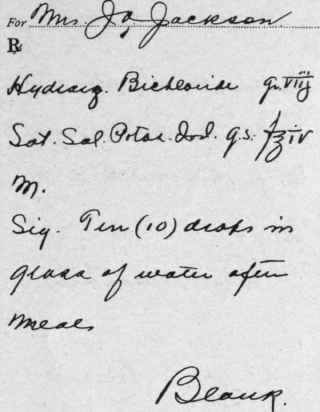 For Mrs. Jas. Jackson.
℞
Hydrarg. Bichloride gr. viij
Sat. Sol. Potas. Iod. q.s. f℥iv
M.
Sig. Ten (10) drops in
glass of water after
meals
Blank.